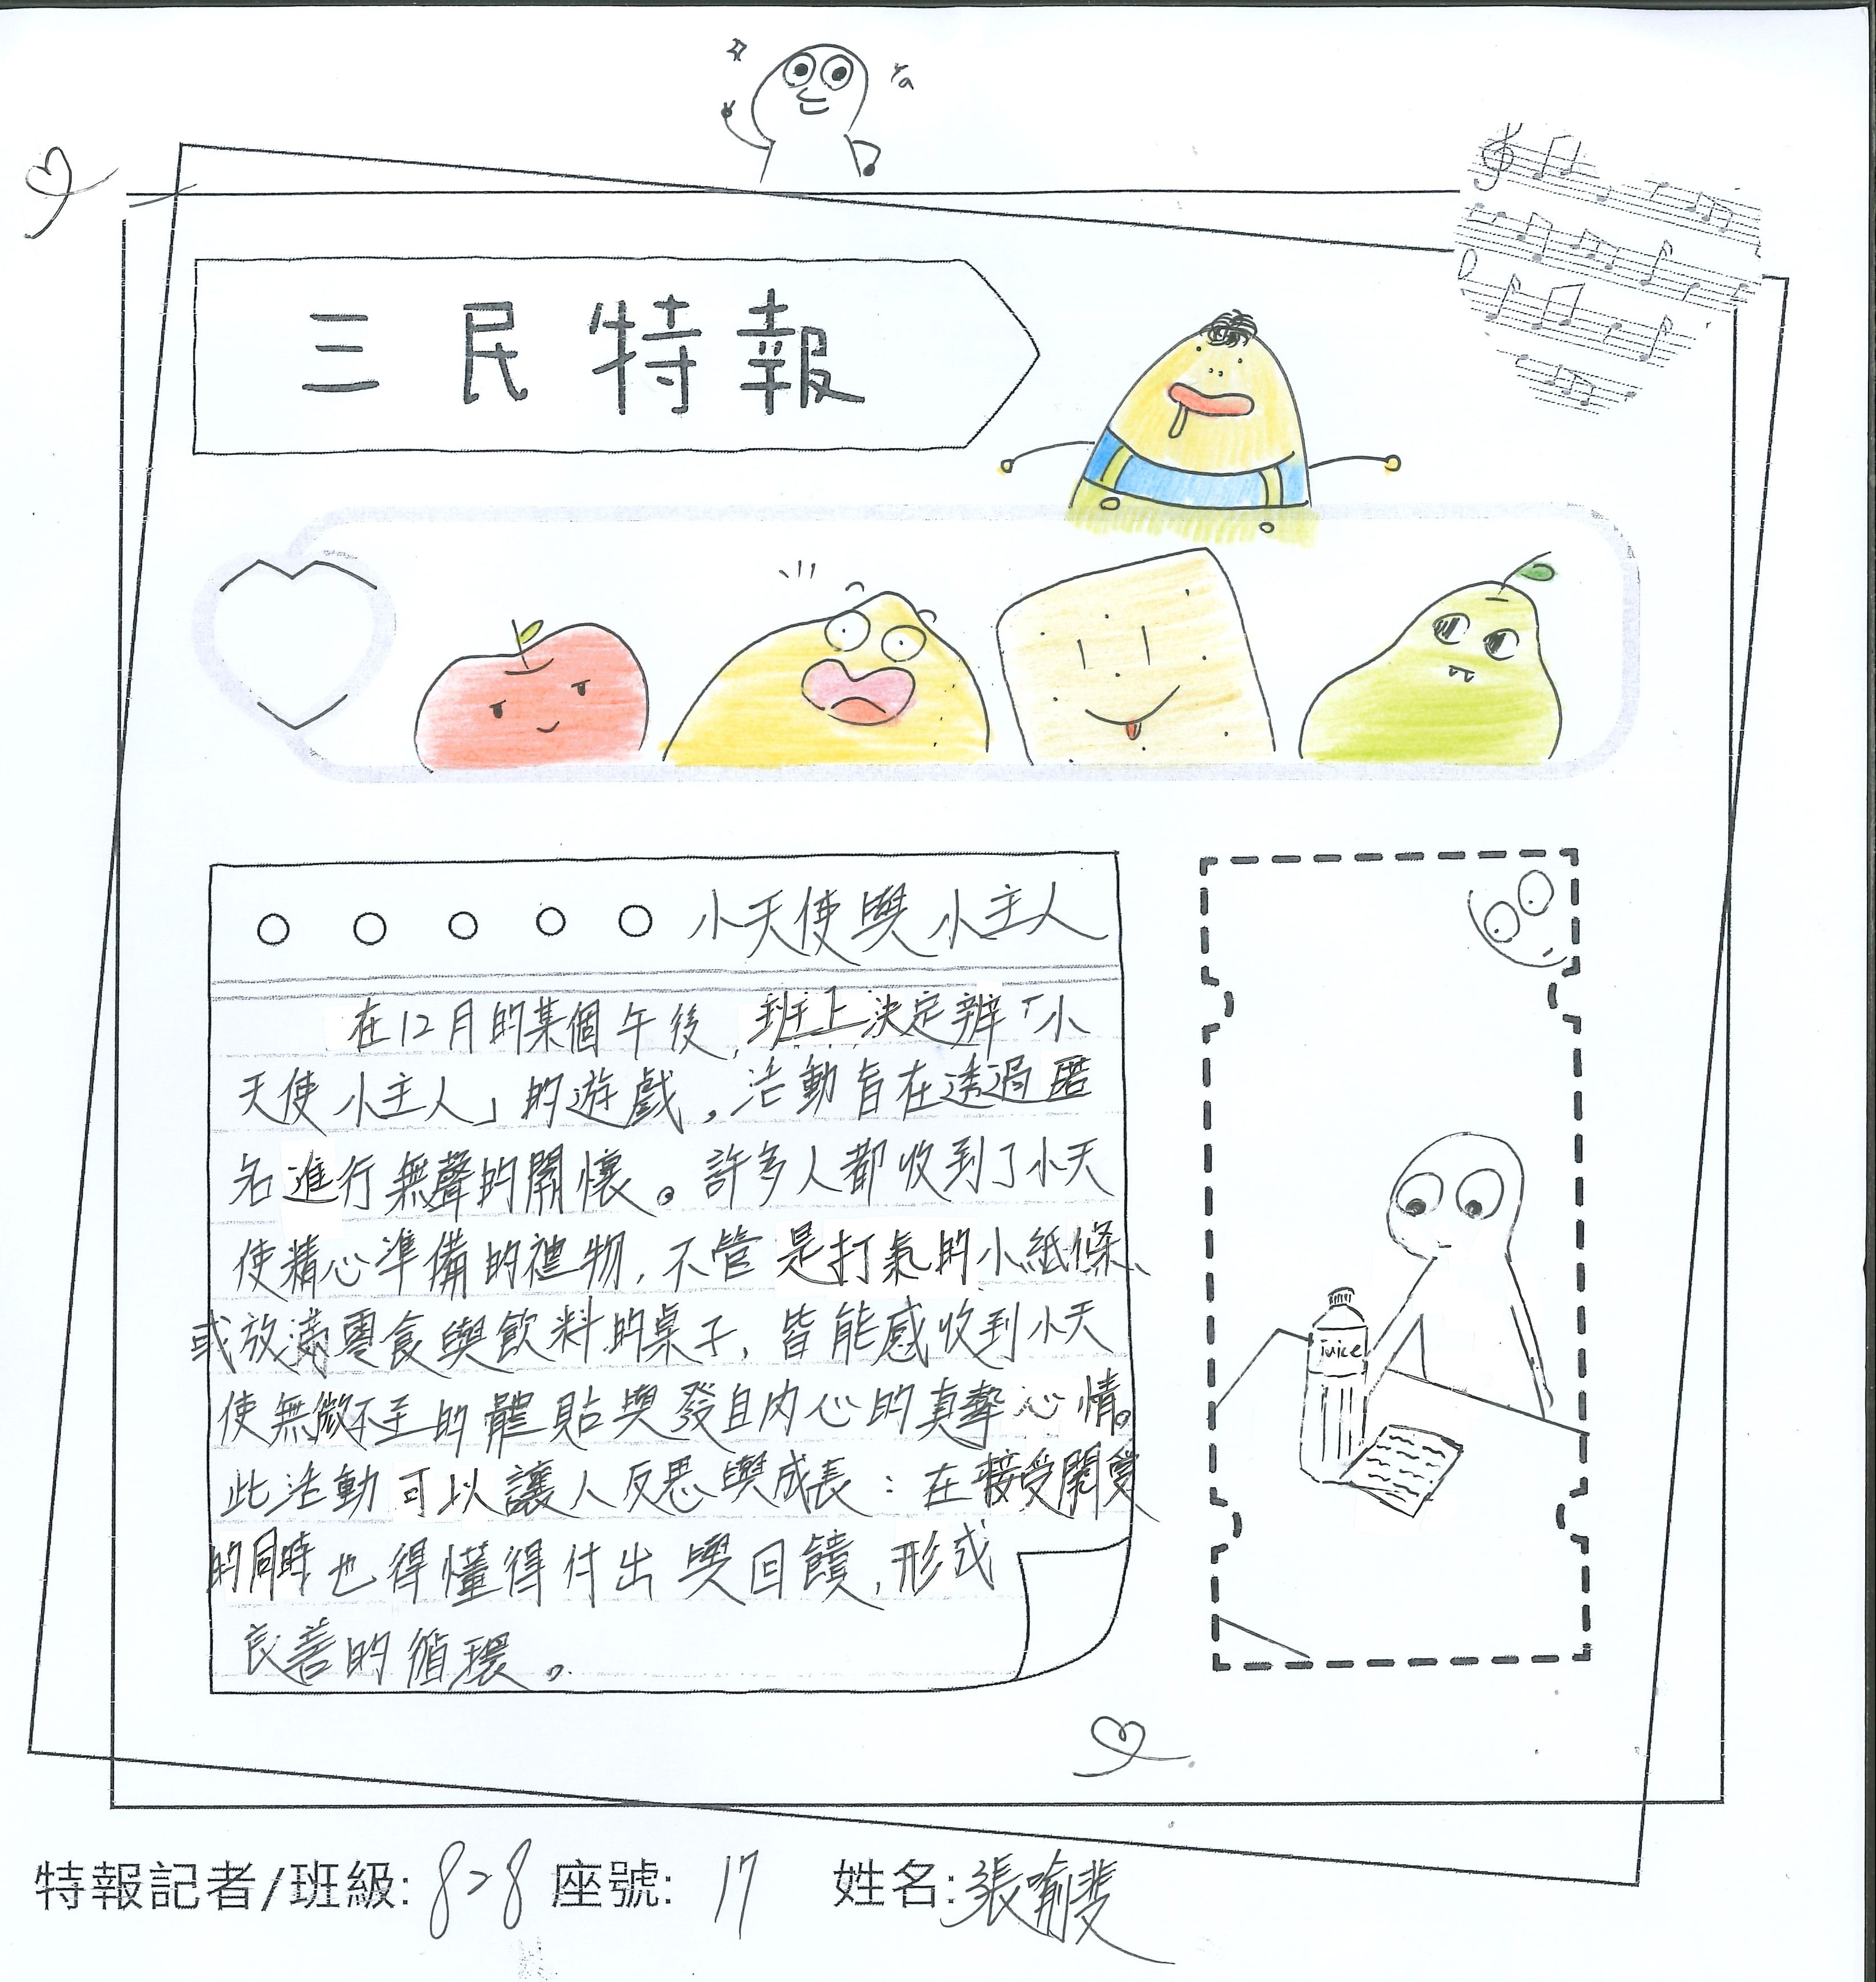 ya
三民特報
小天使與小主人
在12月的某個午後,班上決定辦「小
天使小主人」的遊戲,活動旨在透過匿
名進行無聲的關懷。許多人都收到了小天
使精心準備的禮物,不管是打氣的小紙條、
或放滿零食與飲料的桌子,皆能感收到小天
使無微不至的體貼與發自內心的真摯心情。
此活動可以讓人反思與成長:在接受關愛
的同時也得懂得付出與回饋,形成
良善的循環。
juice
特報記者/班級: 828 座號: 17 姓名:張喻斐